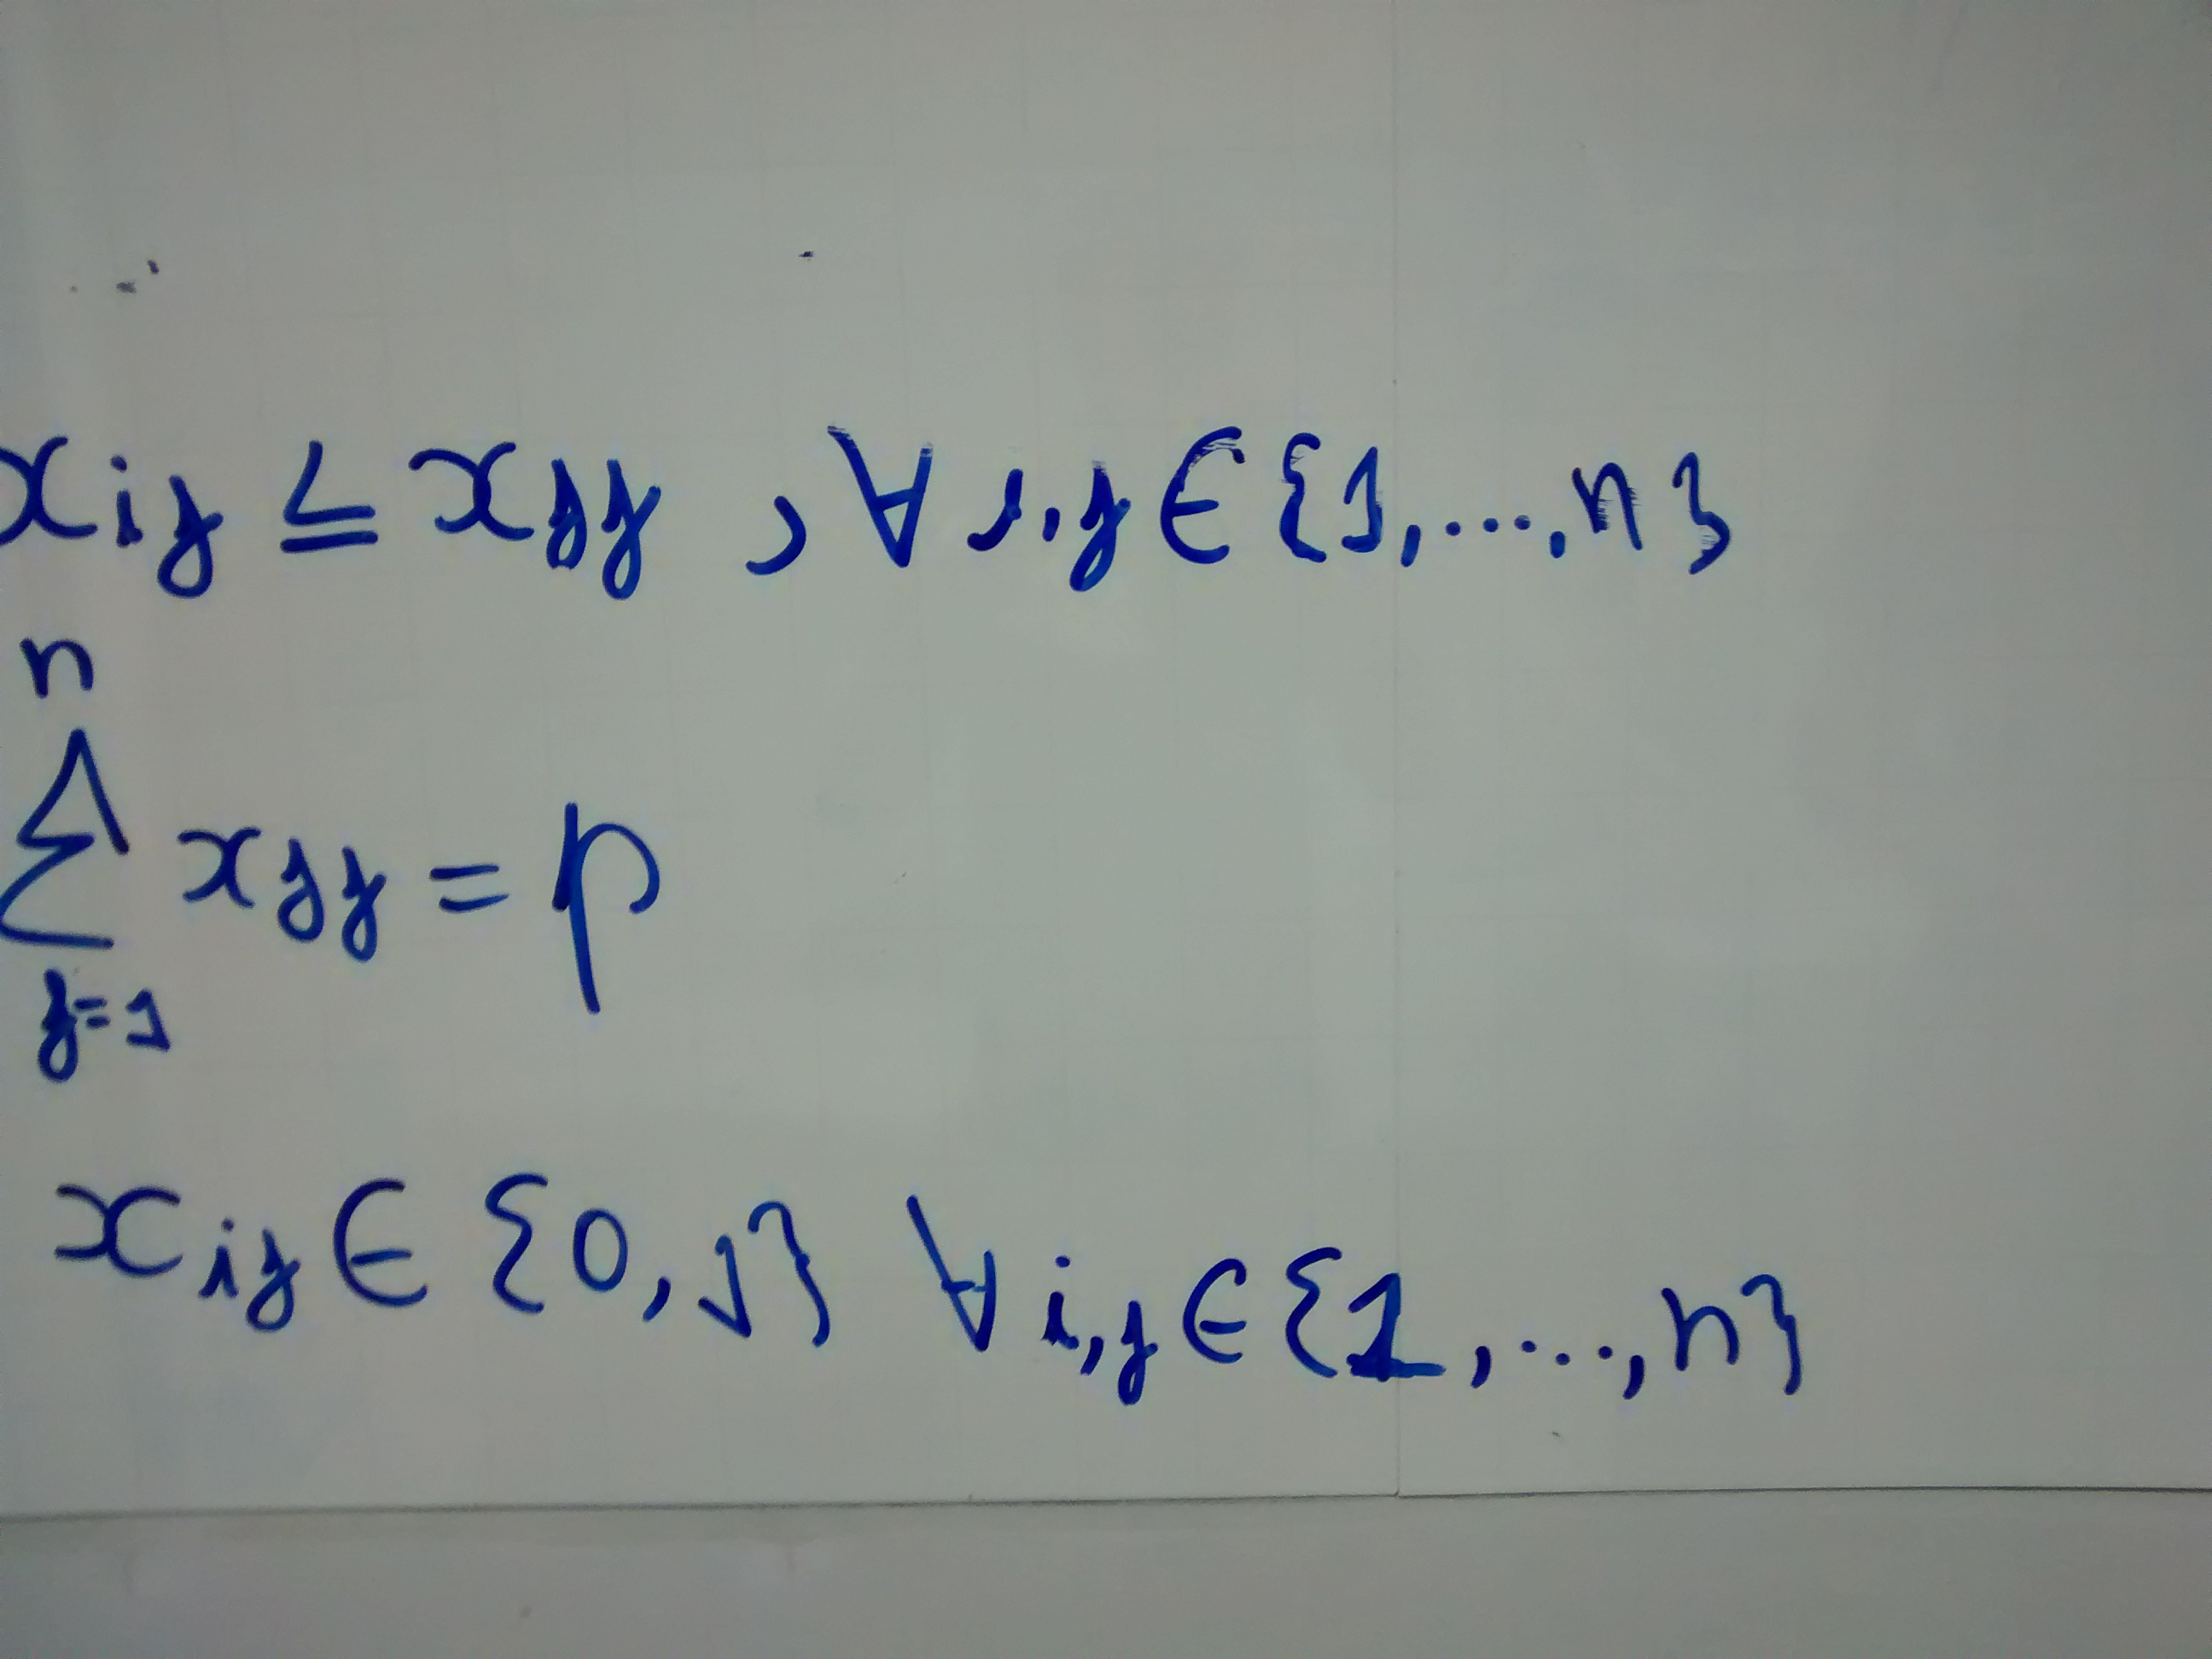 xij ≤ xjj , ∀ i,j ∈ {1,...,n}
n
∑ xjj = p
j=1
xij ∈ {0,1} ∀ i,j ∈ {1,...,n}